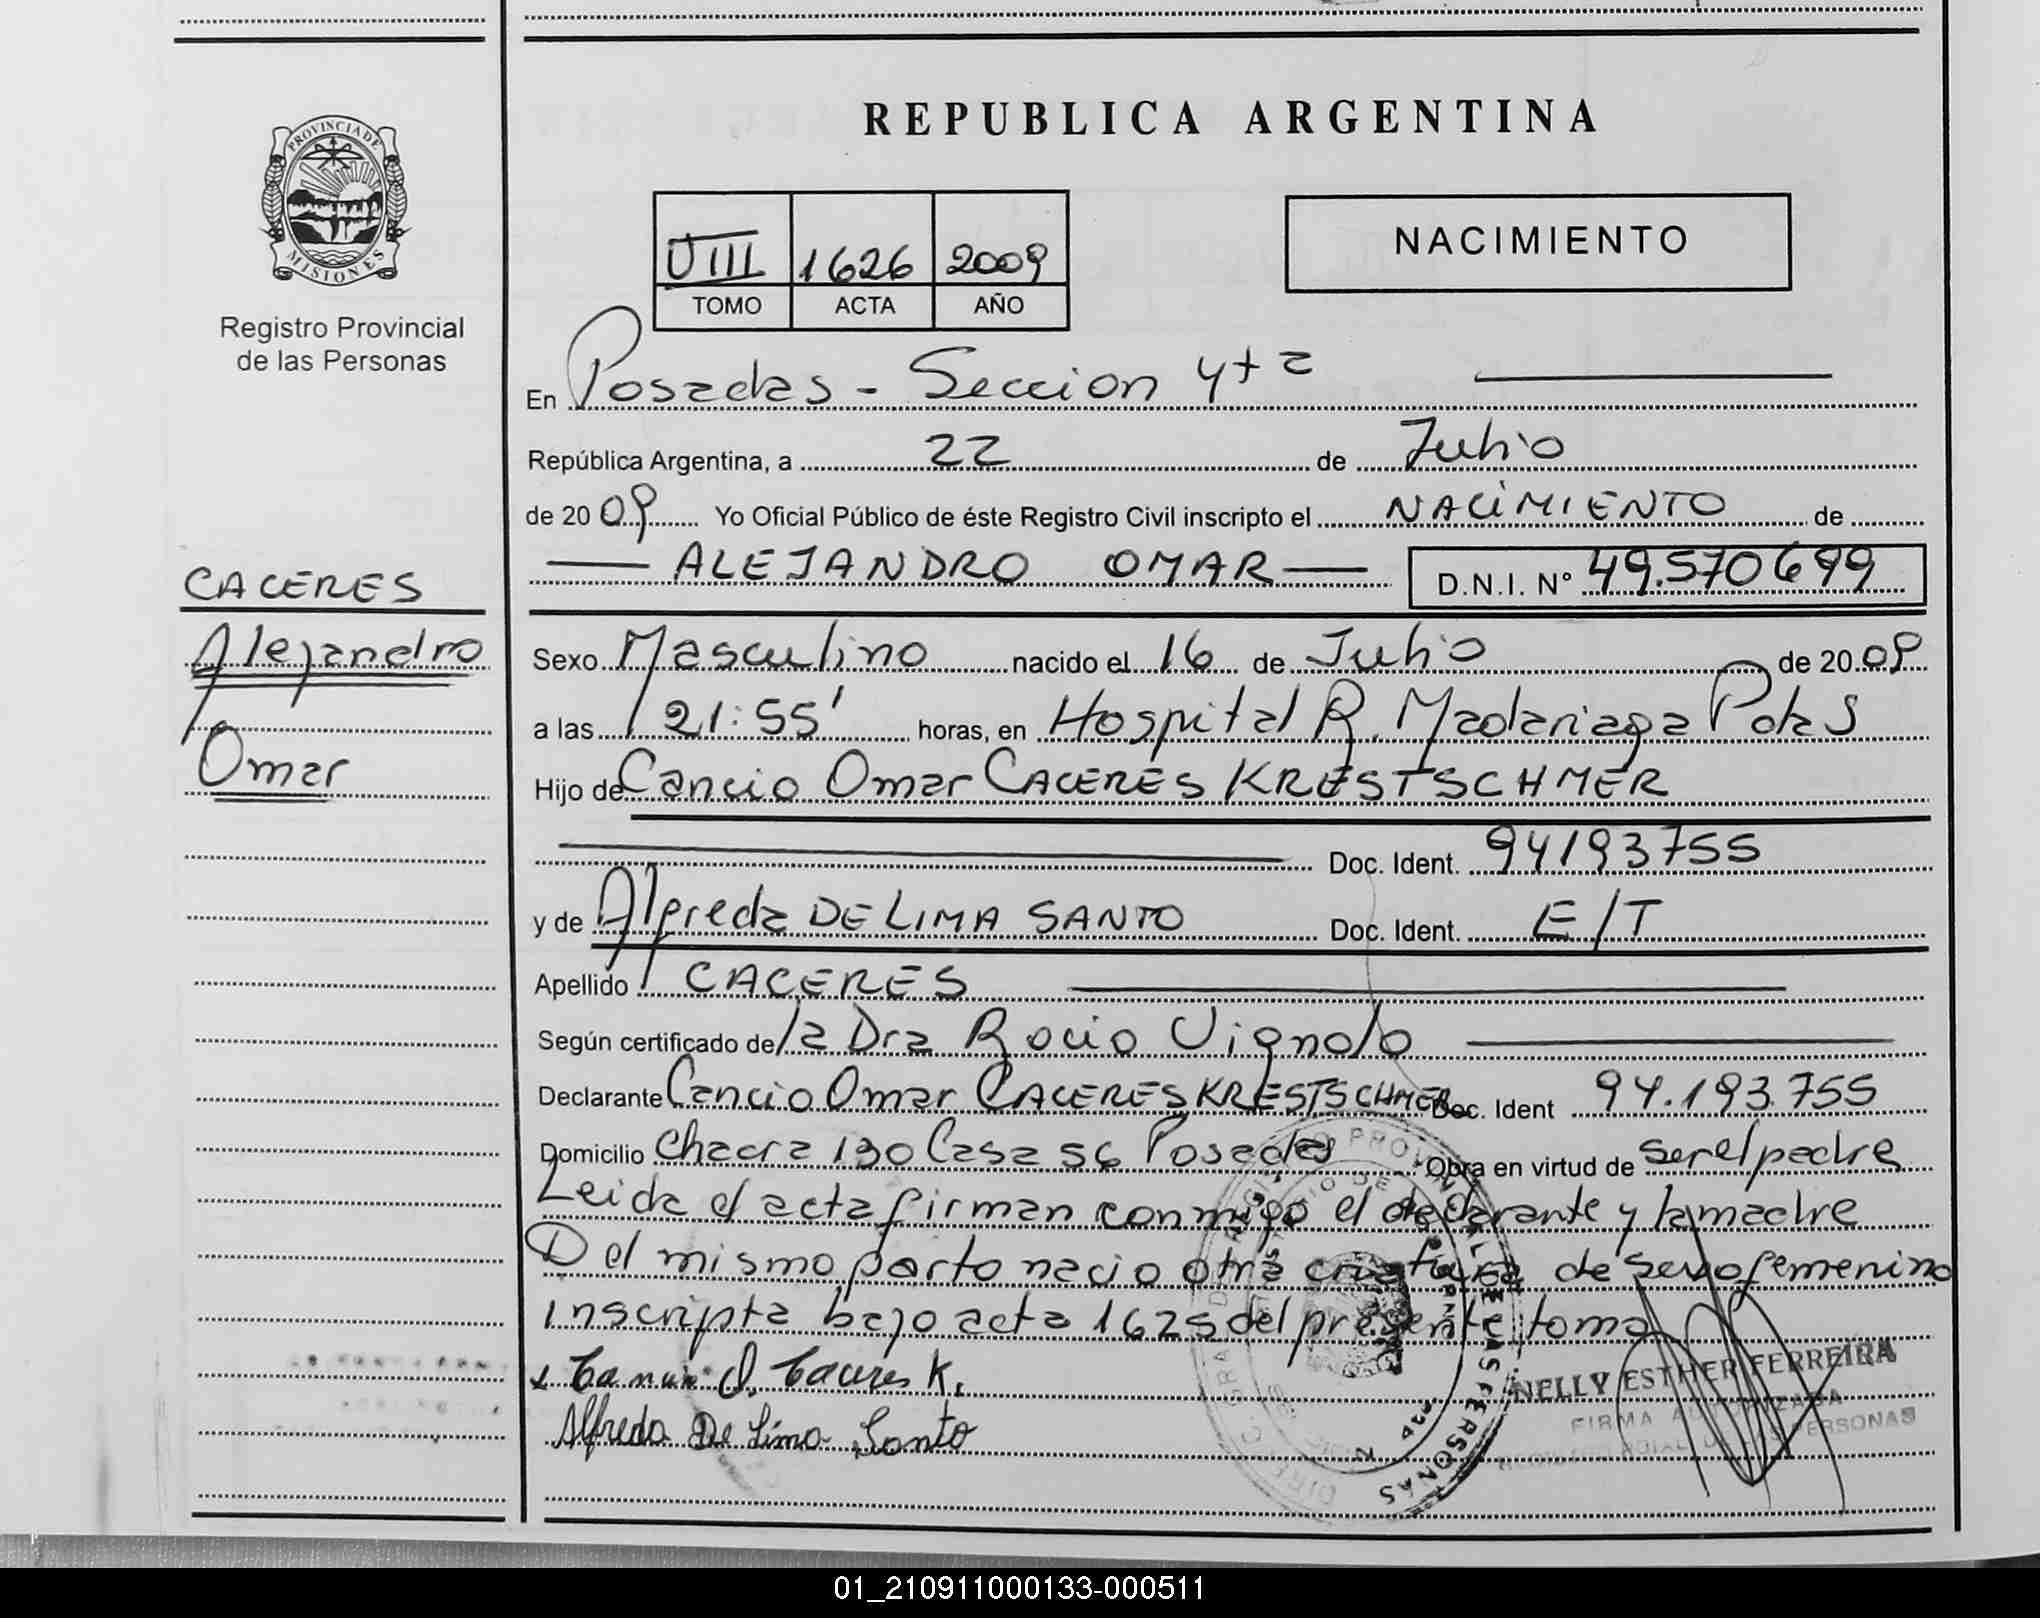 REPUBLICA ARGENTINA
PROVINCIA DE
MISIONES
Registro Provincial
de las Personas
VIII 1626 2009
TOMO ACTA AÑO
NACIMIENTO
En Posadas - Seccion 4ta
República Argentina, a 22 de Julio
de 2009 Yo Oficial Público de éste Registro Civil inscripto el NACIMIENTO de
ALEJANDRO OMAR D.N.I. Nº 49.570699
CACERES
Alejandro
Omar
Sexo Masculino nacido el 16 de Julio de 2009
a las 21:55' horas, en Hospital R. Madariaga Pdas
Hijo de Cancio Omar CACERES KRESTSCHMER
Doc. Ident. 94193755
y de Alfreda DE LIMA SANTO Doc. Ident. E/T
Apellido CACERES
Según certificado de la Dra Rocio Vignolo
Declarante Cancio Omar CACERES KRESTSCHMER Doc. Ident 94.193.755
Domicilio Chacra 130 Casa 56 Posadas Obra en virtud de ser el padre
Leida el acta firman conmigo el declarante y la madre
Del mismo parto nacio otra criatura de sexo femenino
inscripta bajo acta 1625 del presente tomo
Caceres K.
Alfreda De Lima Santo
NELLY ESTHER FERREIRA
FIRMA AUTORIZADA
DE LAS PERSONAS
01_210911000133-000511